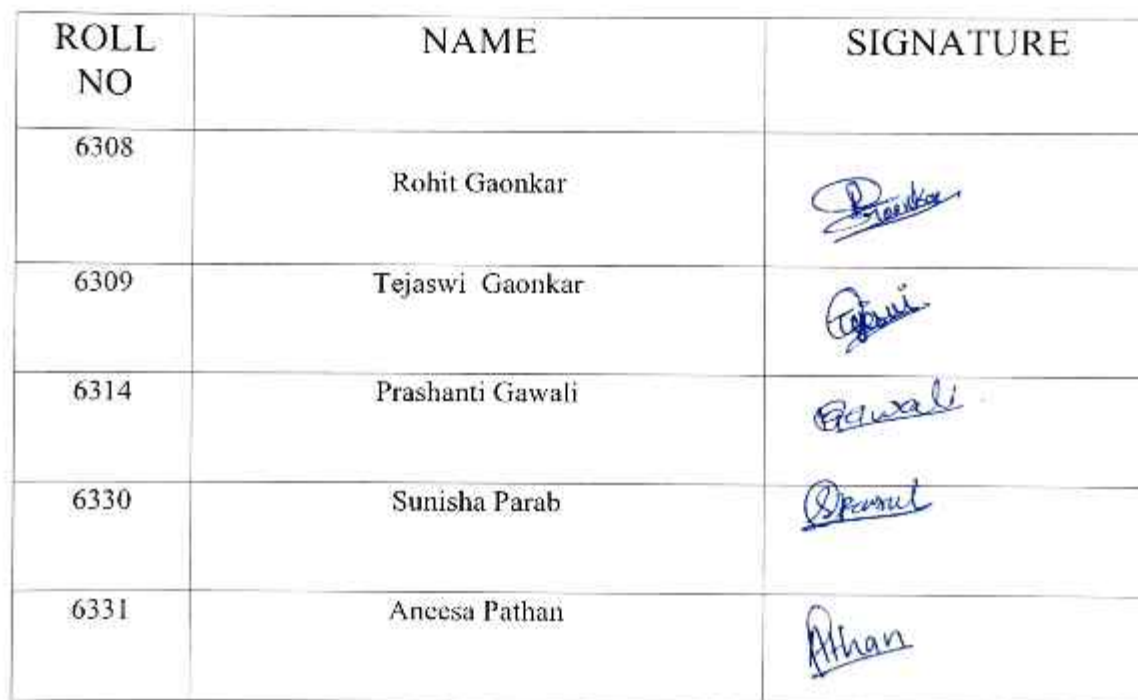 ROLL NO NAME SIGNATURE
6308
Rohit Gaonkar
Gaonkar
6309 Tejaswi Gaonkar
Tejaswi
6314 Prashanti Gawali Gawali
6330 Sunisha Parab
6331 Aneesa Pathan
Athan